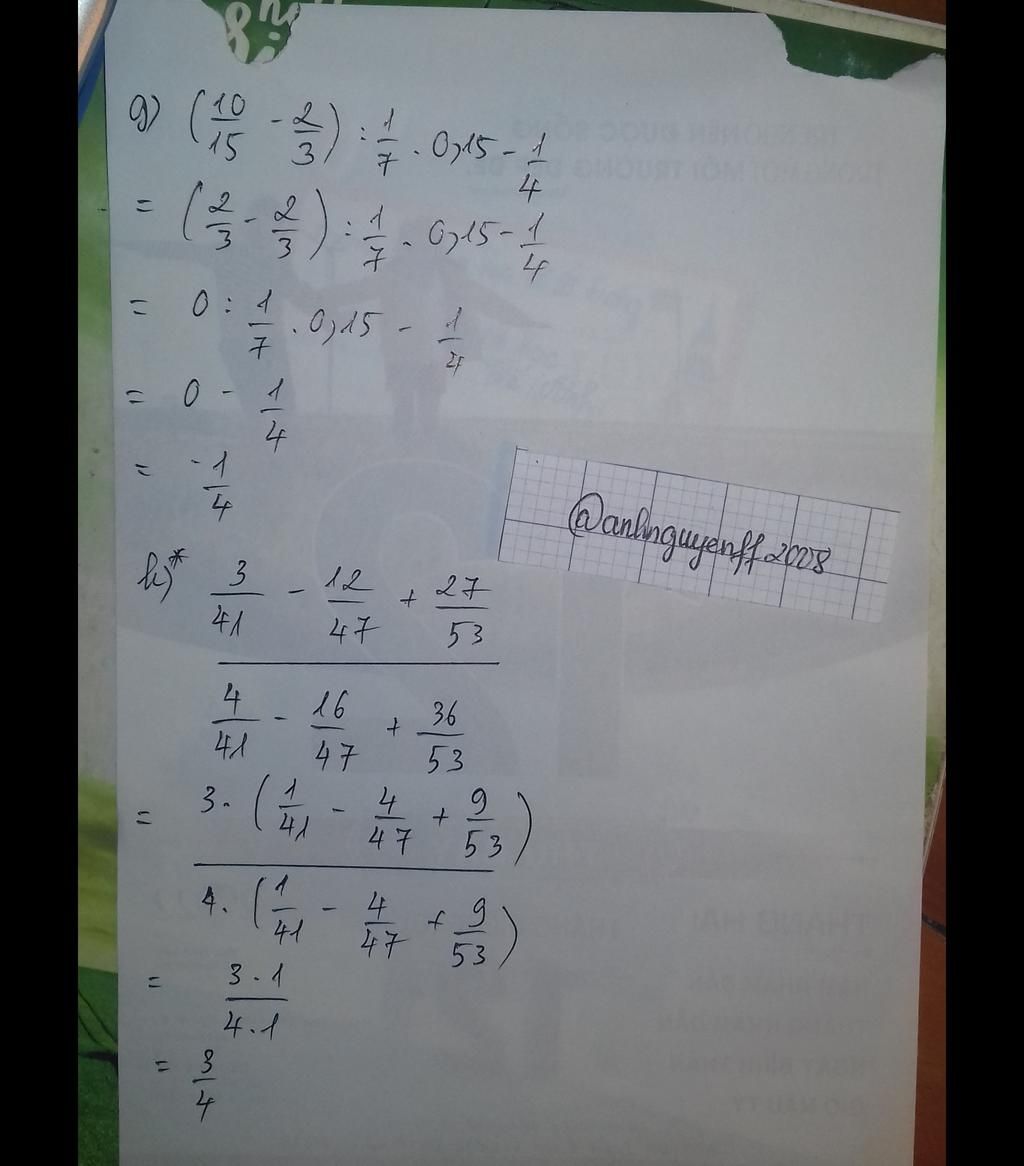 g) (10/15 - 2/3) : 1/7 . 0,15 - 1/4
= (2/3 - 2/3) : 1/7 . 0,15 - 1/4
= 0 : 1/7 . 0,15 - 1/4
= 0 - 1/4
= -1/4
@anhnguyenff.2008
h)* 3/41 - 12/47 + 27/53
4/41 - 16/47 + 36/53
= 3. (1/41 - 4/47 + 9/53)
4. (1/41 - 4/47 + 9/53)
= 3.1
4.1
= 3/4